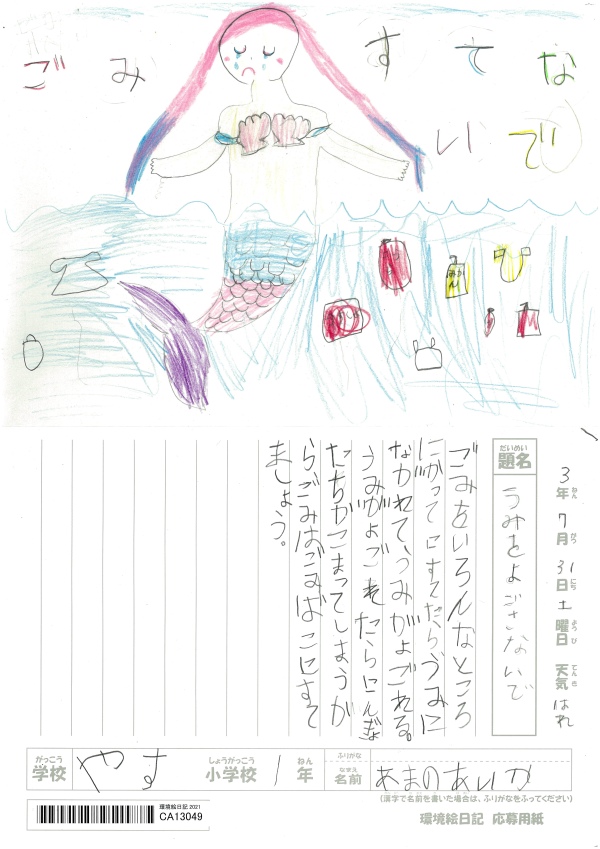 ごみ すてな
いで
3年ねん 7月がつ 31日にち 土曜日ようび 天気てんき はれ
題名だいめい うみをよごさないで
ごみをいろんなところ
にがってにすてたらうみに
ながれてうみがよごれる。
うみがよごれたらにんぎょ
たちがこまってしまうか
らごみはごみばこにすて
ましょう。
がっこう しょうがっこう ねん ふりがな
学校 やす 小学校 1年 なまえ 名前 あまのあいか
(漢字で名前を書いた場合は、ふりがなをふってください)
環境絵日記 2021
CA13049
環境絵日記 応募用紙